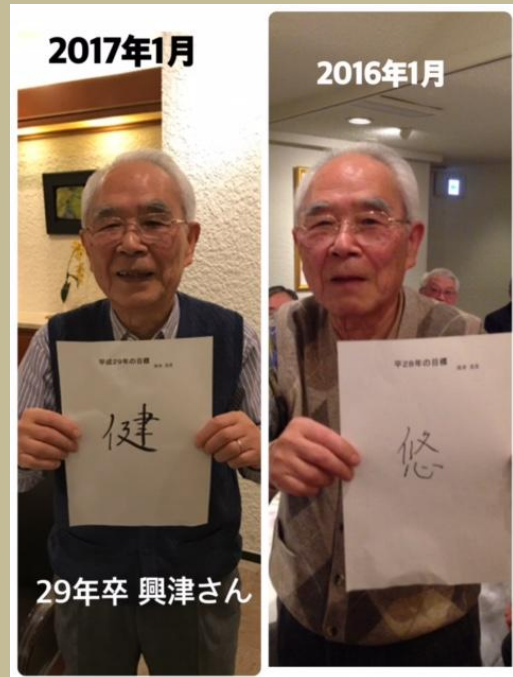 2017年1月
平成29年の目標
健
29年卒 興津さん
2016年1月
平28年の目標
悠